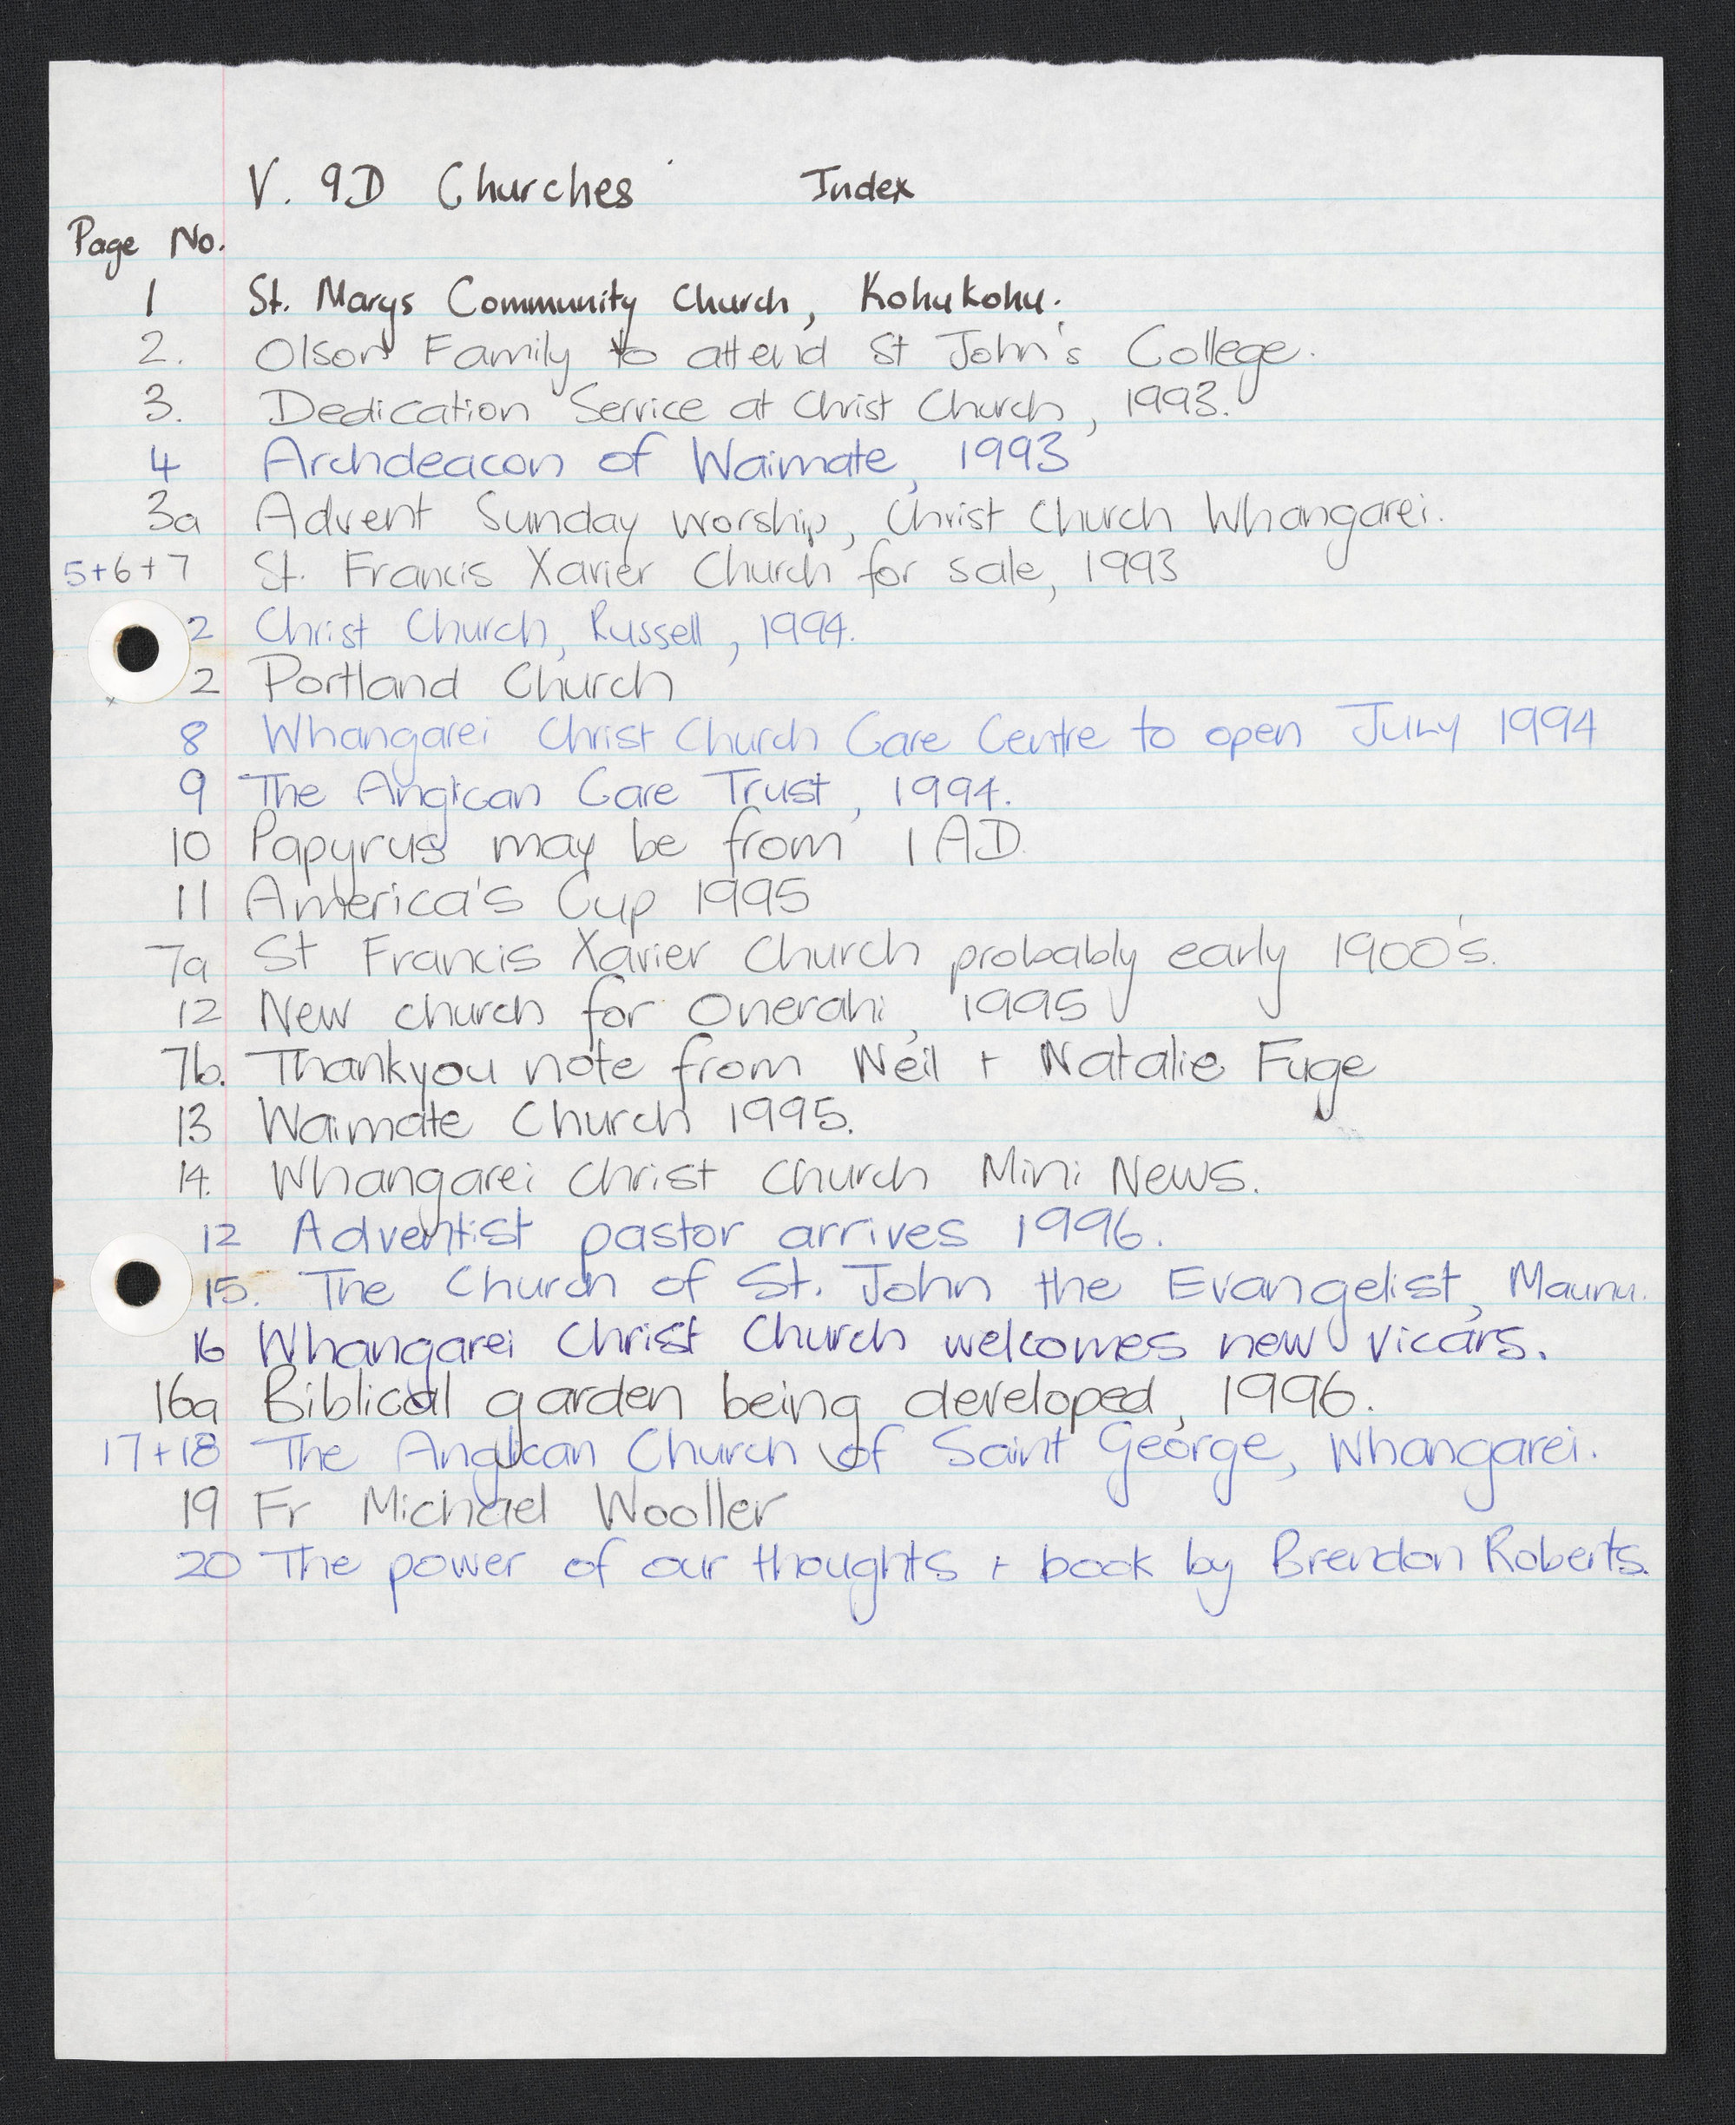 V. 9D Churches Index
Page No.
1 St. Marys Community Church, Kohukohu.
2. Olson Family to attend St John's College.
3. Dedication Service at Christ Church, 1993.
4 Archdeacon of Waimate, 1993
3a Advent Sunday worship, Christ Church Whangarei.
5+6+7 St. Francis Xavier Church for sale, 1993
2 Christ Church, Russell, 1994.
2 Portland Church
8 Whangarei Christ Church Care Centre to open July 1994
9 The Anglican Care Trust, 1994.
10 Papyrus may be from 1 AD.
11 America's Cup 1995
7a St Francis Xavier Church probably early 1900's.
12 New church for Onerahi, 1995
7b. Thankyou note from Neil + Natalie Fuge
13 Waimate Church 1995.
14. Whangarei Christ Church Mini News.
12 Adventist pastor arrives 1996.
15. The Church of St. John the Evangelist, Maunu.
16 Whangarei Christ Church welcomes new vicars.
16a Biblical garden being developed, 1996.
17+18 The Anglican Church of Saint George, Whangarei.
19 Fr Michael Wooller
20 The power of our thoughts + book by Brendon Roberts.